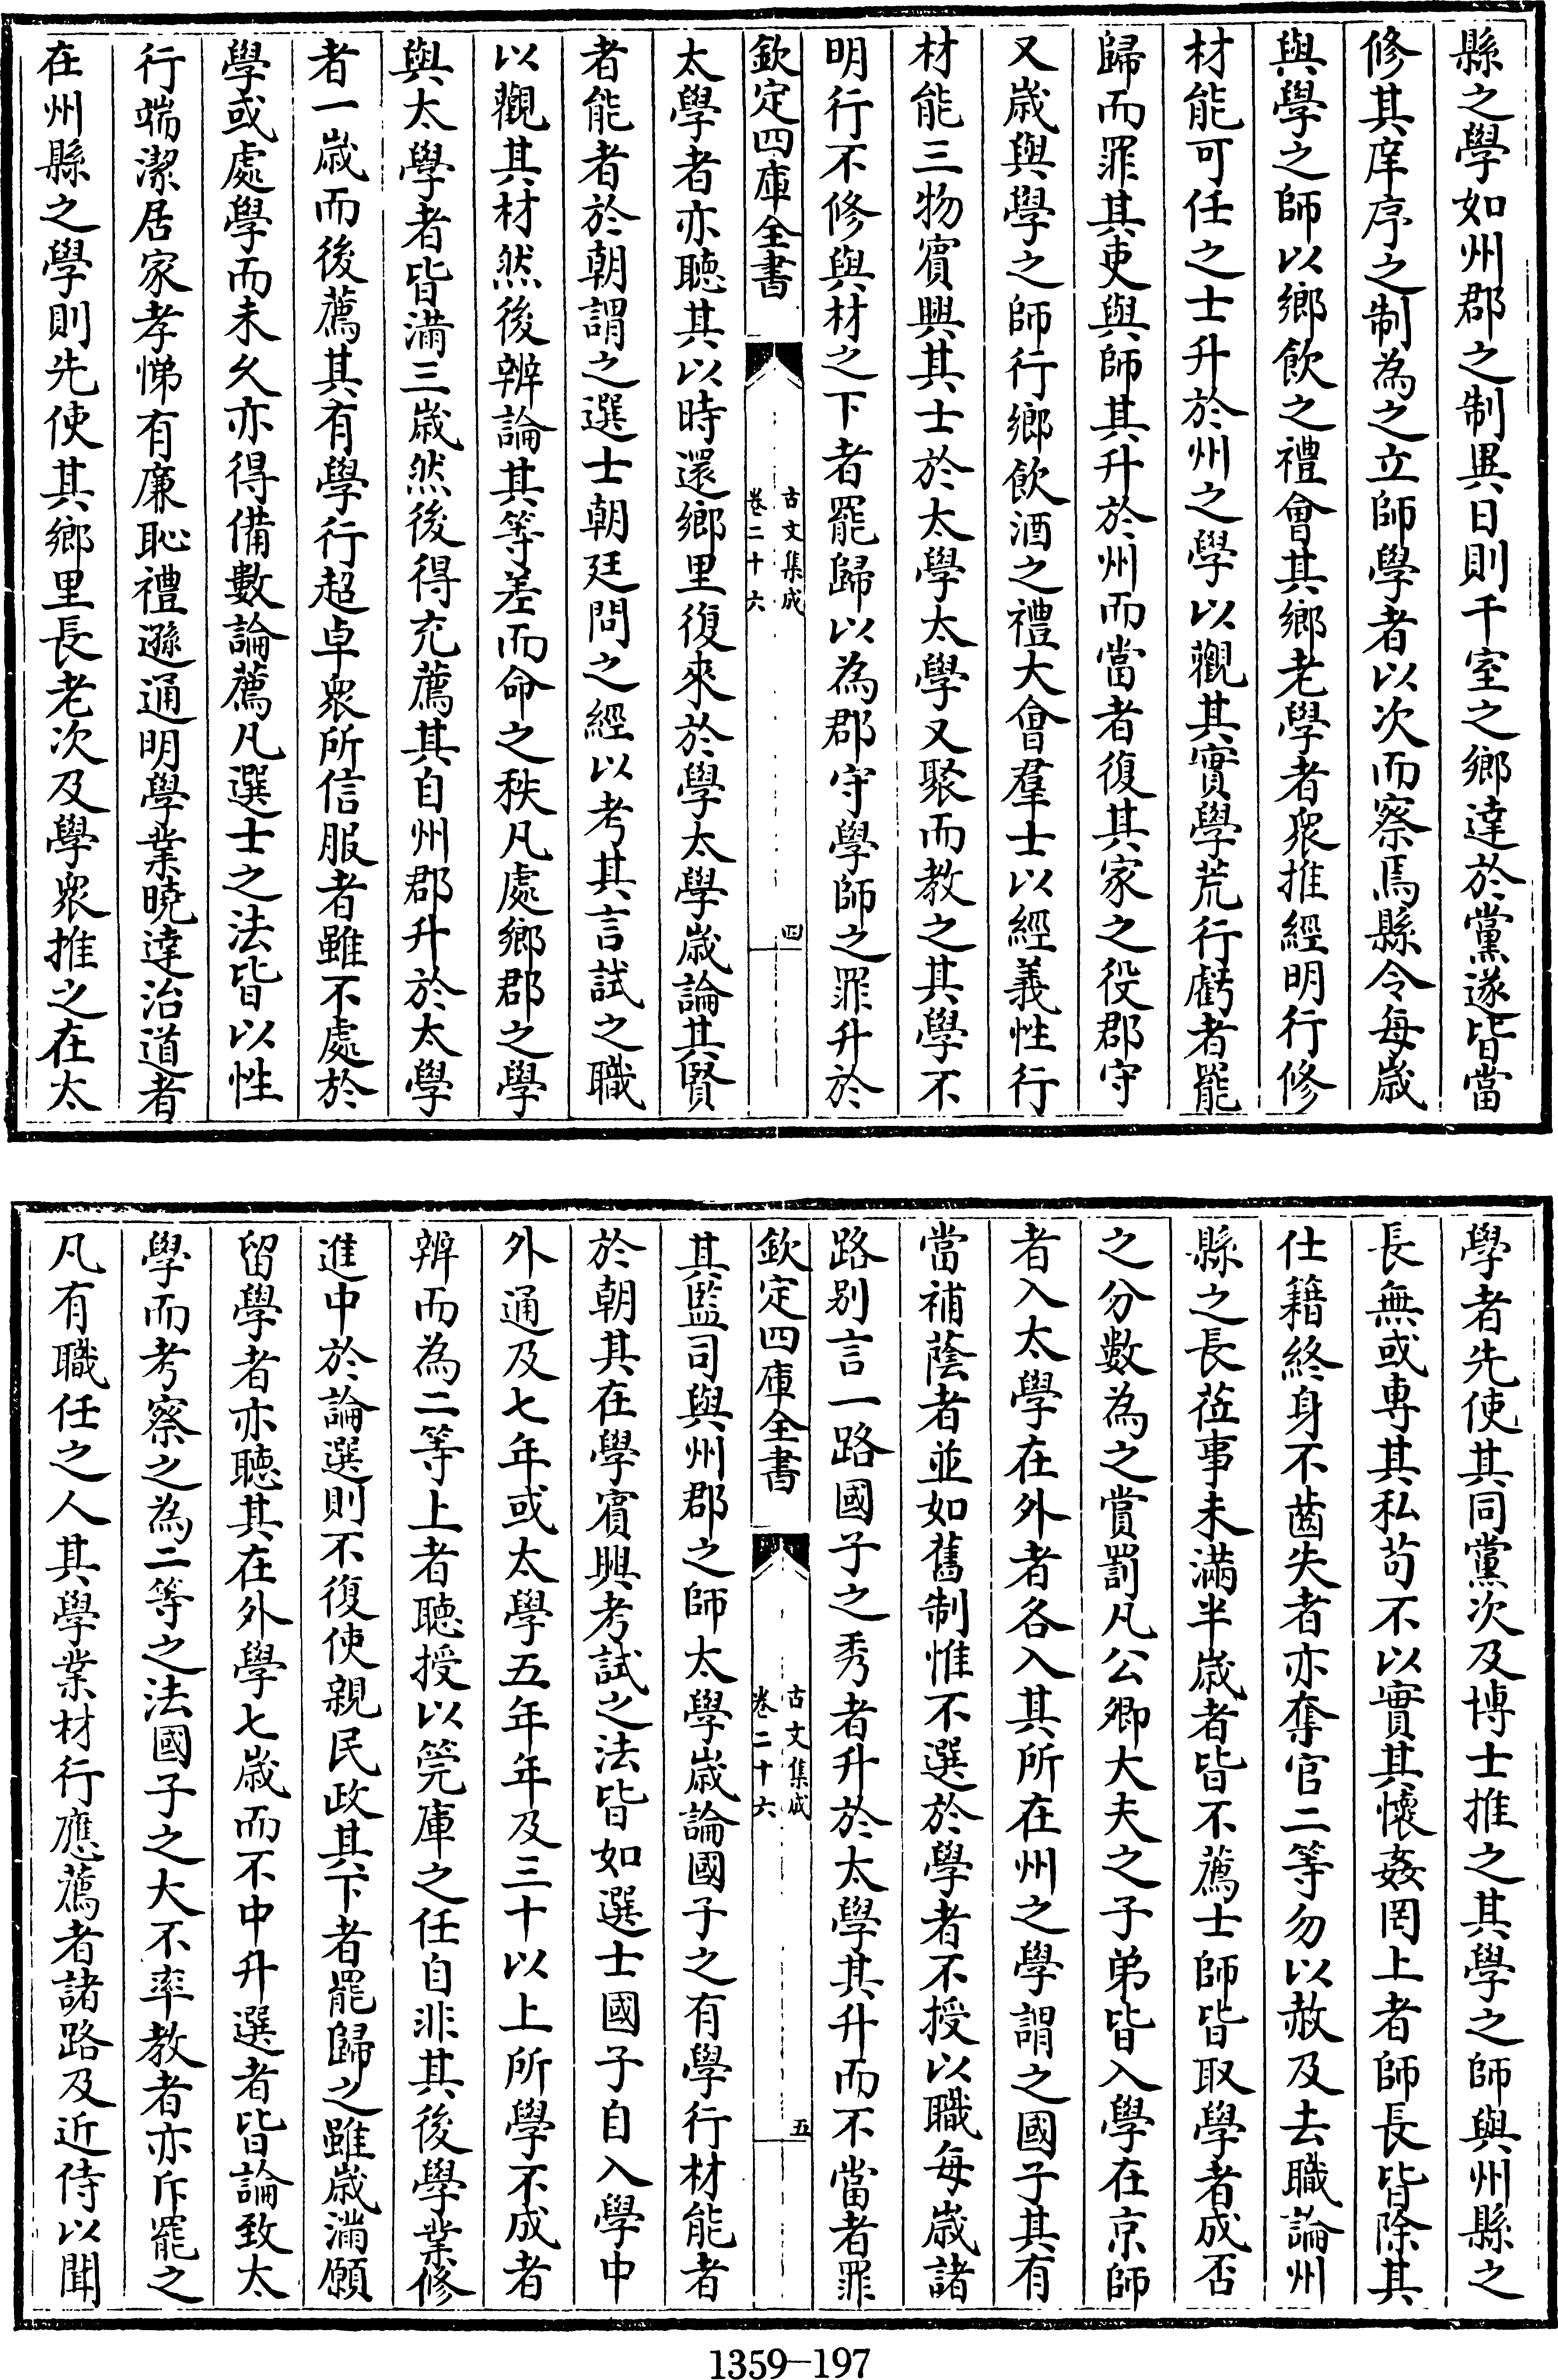 縣之學如州郡之制異日則千室之鄉達於黨遂皆當
修其庠序之制為之立師學者以次而察焉縣令每歲
與學之師以鄉飲之禮會其鄉老學者衆推經明行修
材能可任之士升於州之學以觀其實學荒行虧者罷
歸而罪其吏與師其升於州而當者復其家之役郡守
又歲與學之師行鄉飲酒之禮大會羣士以經義性行
材能三物賓興其士於太學太學又聚而教之其學不
明行不修與材之下者罷歸以為郡守學師之罪升於
欽定四庫全書
古文集成
卷二十六
四
太學者亦聽其以時還鄉里復來於學太學歲論其賢
者能者於朝謂之選士朝廷問之經以考其言試之職
以觀其材然後辨論其等差而命之秩凡處鄉郡之學
與太學者皆滿三歲然後得充薦其自州郡升於太學
者一歲而後薦其有學行超卓衆所信服者雖不處於
學或處學而未久亦得備數論薦凡選士之法皆以性
行端潔居家孝悌有廉恥禮遜通明學業曉達治道者
在州縣之學則先使其鄉里長老次及學衆推之在太
學者先使其同黨次及博士推之其學之師與州縣之
長無或專其私苟不以實其懷姦罔上者師長皆除其
仕籍終身不齒失者亦奪官二等勿以赦及去職論州
縣之長莅事未滿半歲者皆不薦士師皆取學者成否
之分數為之賞罰凡公卿大夫之子弟皆入學在京師
者入太學在外者各入其所在州之學謂之國子其有
當補蔭者並如舊制惟不選於學者不授以職每歲諸
路別言一路國子之秀者升於太學其升而不當者罪
欽定四庫全書
古文集成
卷二十六
五
其監司與州郡之師太學歲論國子之有學行材能者
於朝其在學賓興考試之法皆如選士國子自入學中
外通及七年或太學五年年及三十以上所學不成者
辨而為二等上者聽授以筦庫之任自非其後學業修
進中於論選則不復使親民政其下者罷歸之雖歲滿願
留學者亦聽其在外學七歲而不中升選者皆論致太
學而考察之為二等之法國子之大不率教者亦斥罷之
凡有職任之人其學業材行應薦者諸路及近侍以聞
1359-197